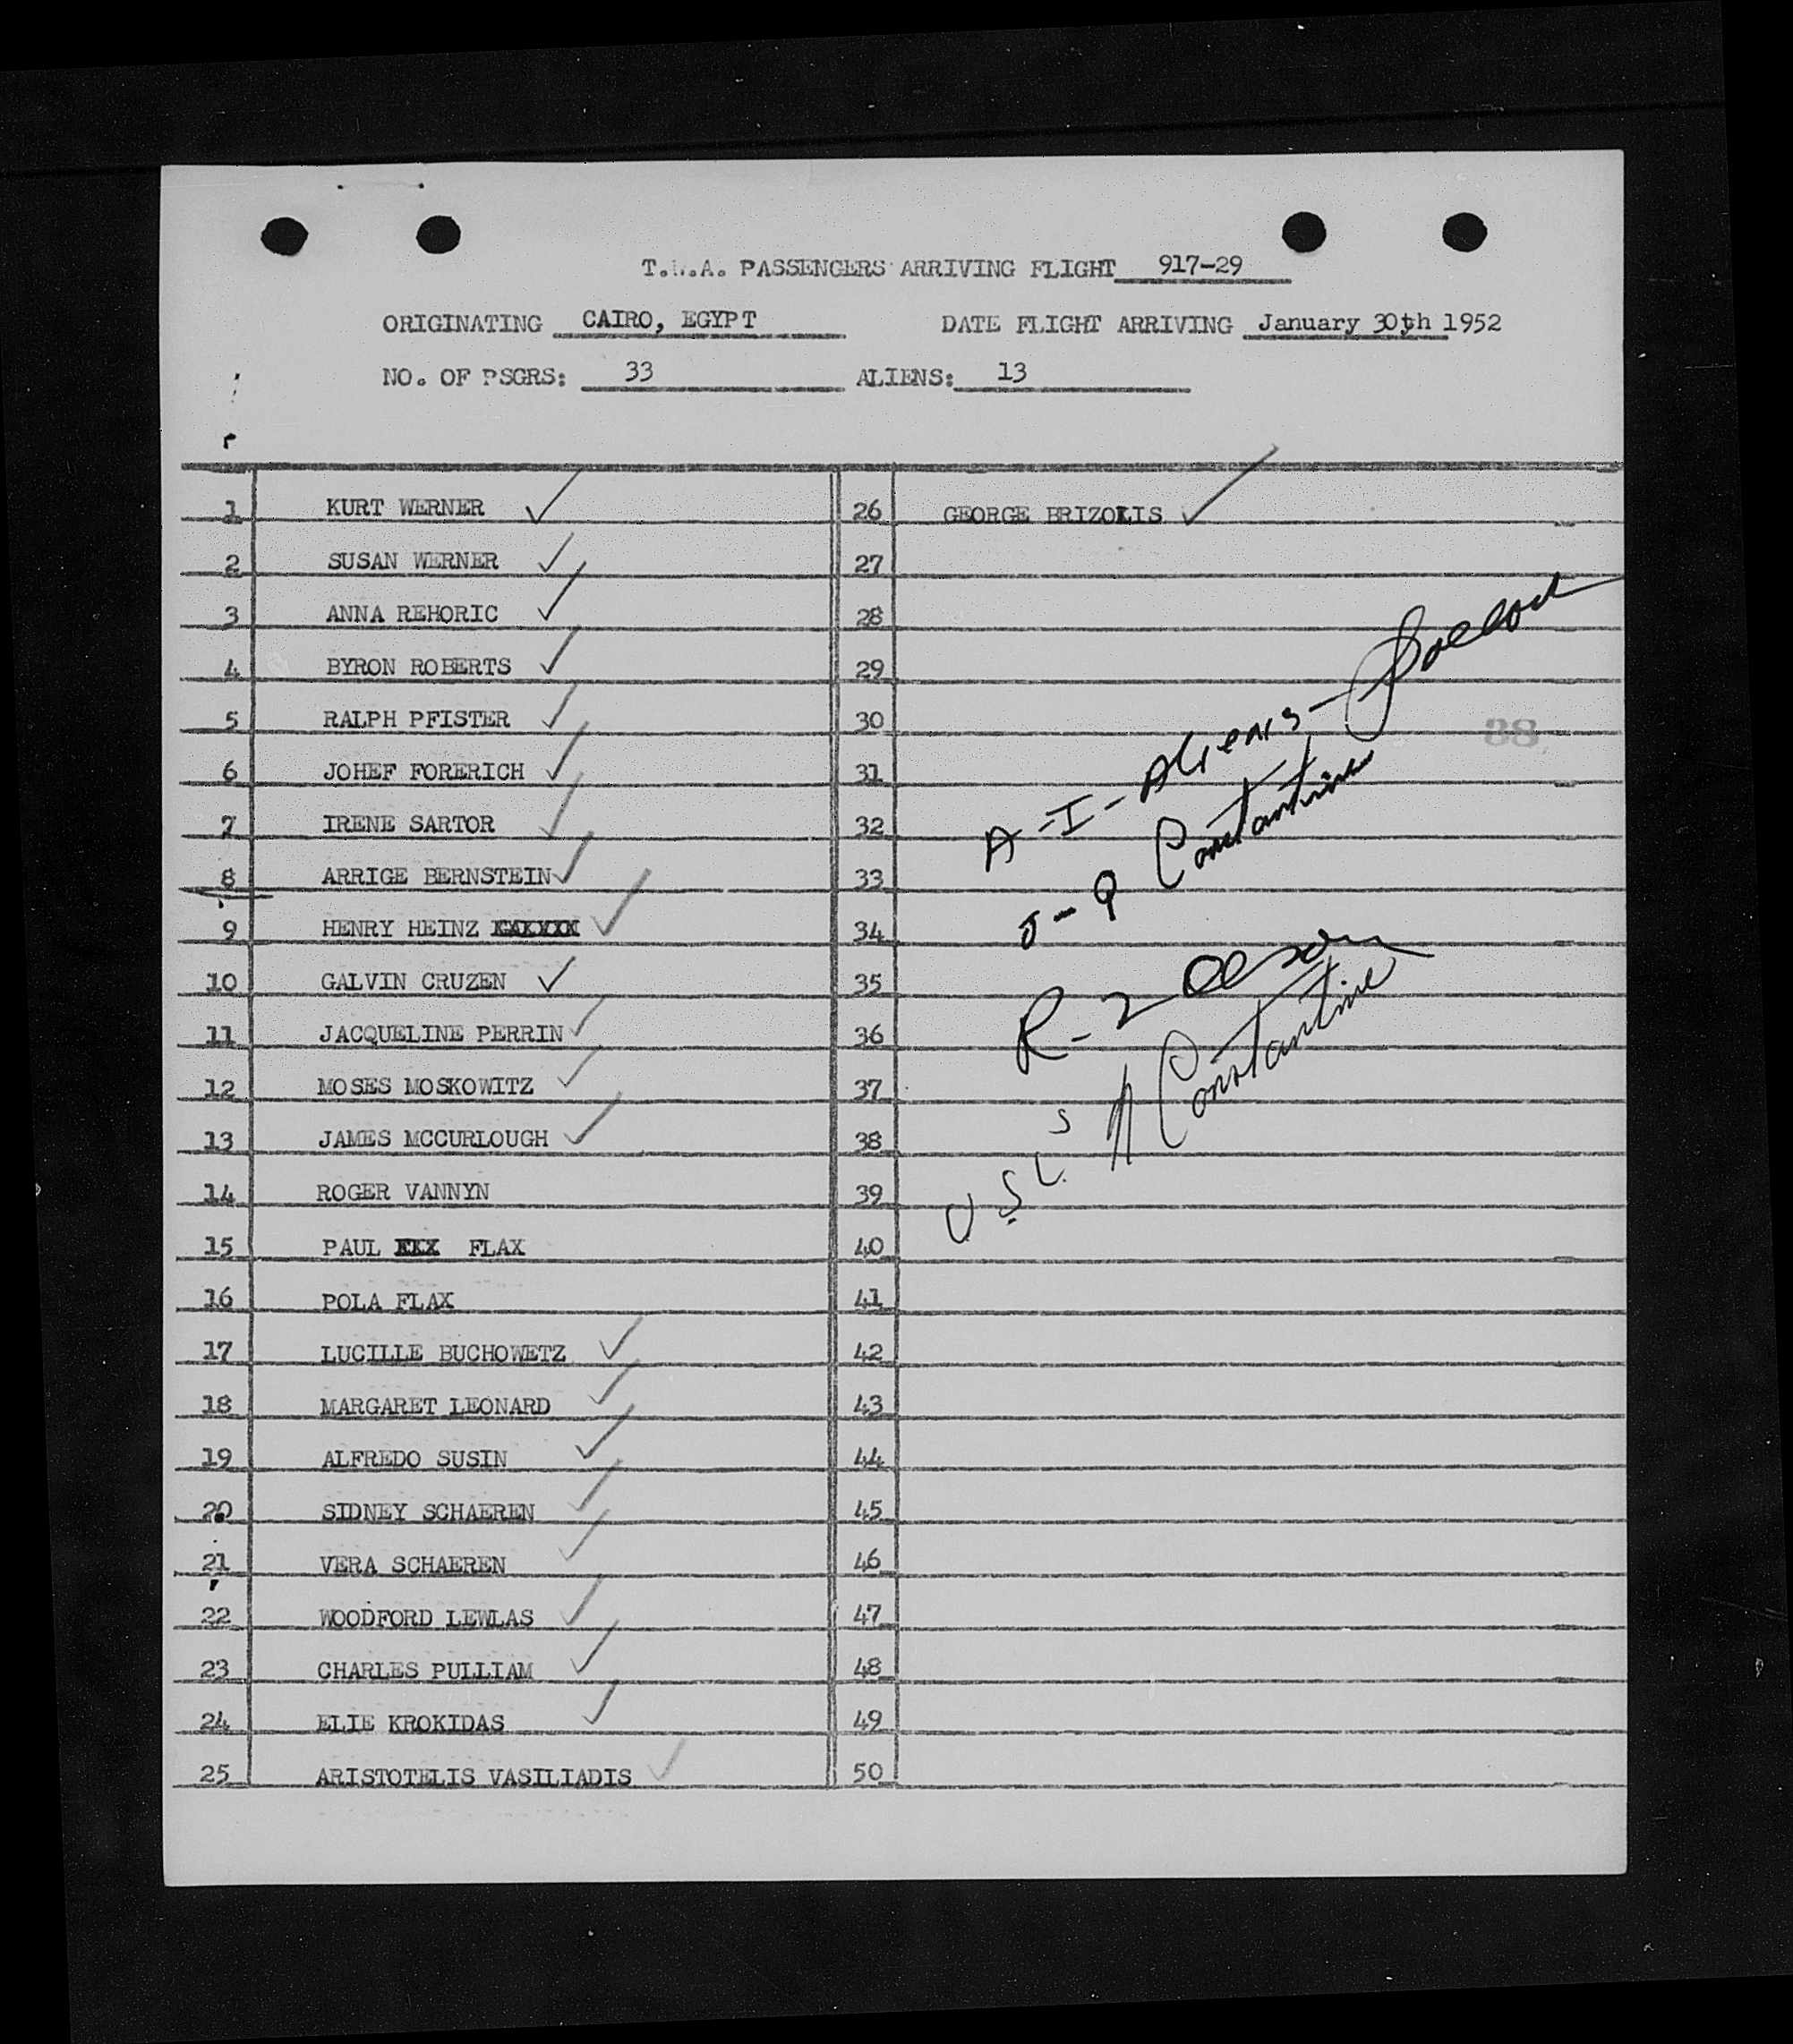 T.W.A. PASSENGERS ARRIVING FLIGHT 917-29
ORIGINATING CAIRO, EGYPT DATE FLIGHT ARRIVING January 30th 1952
NO. OF PSGRS: 33 ALIENS: 13
1 KURT WERNER
2 SUSAN WERNER
3 ANNA REHORIC
4 BYRON ROBERTS
5 RALPH PFISTER
6 JOHEF FORERICH
7 IRENE SARTOR
8 ARRIGE BERNSTEIN
9 HENRY HEINZ
10 GALVIN CRUZEN
11 JACQUELINE PERRIN
12 MOSES MOSKOWITZ
13 JAMES MCCURLOUGH
14 ROGER VANNYN
15 PAUL FLAX
16 POLA FLAX
17 LUCILLE BUCHOWETZ
18 MARGARET LEONARD
19 ALFREDO SUSIN
20 SIDNEY SCHAEREN
21 VERA SCHAEREN
22 WOODFORD LEWLAS
23 CHARLES PULLIAM
24 ELIE KROKIDAS
25 ARISTOTELIS VASILIADIS
26 GEORGE BRIZOLIS
27
28
29
30
31
32
33
34
35
36
37
38
39
40
41
42
43
44
45
46
47
48
49
50
38
A-I-Aliens-
J-Q Constantine
R-Z Olson
U.S. Constantine